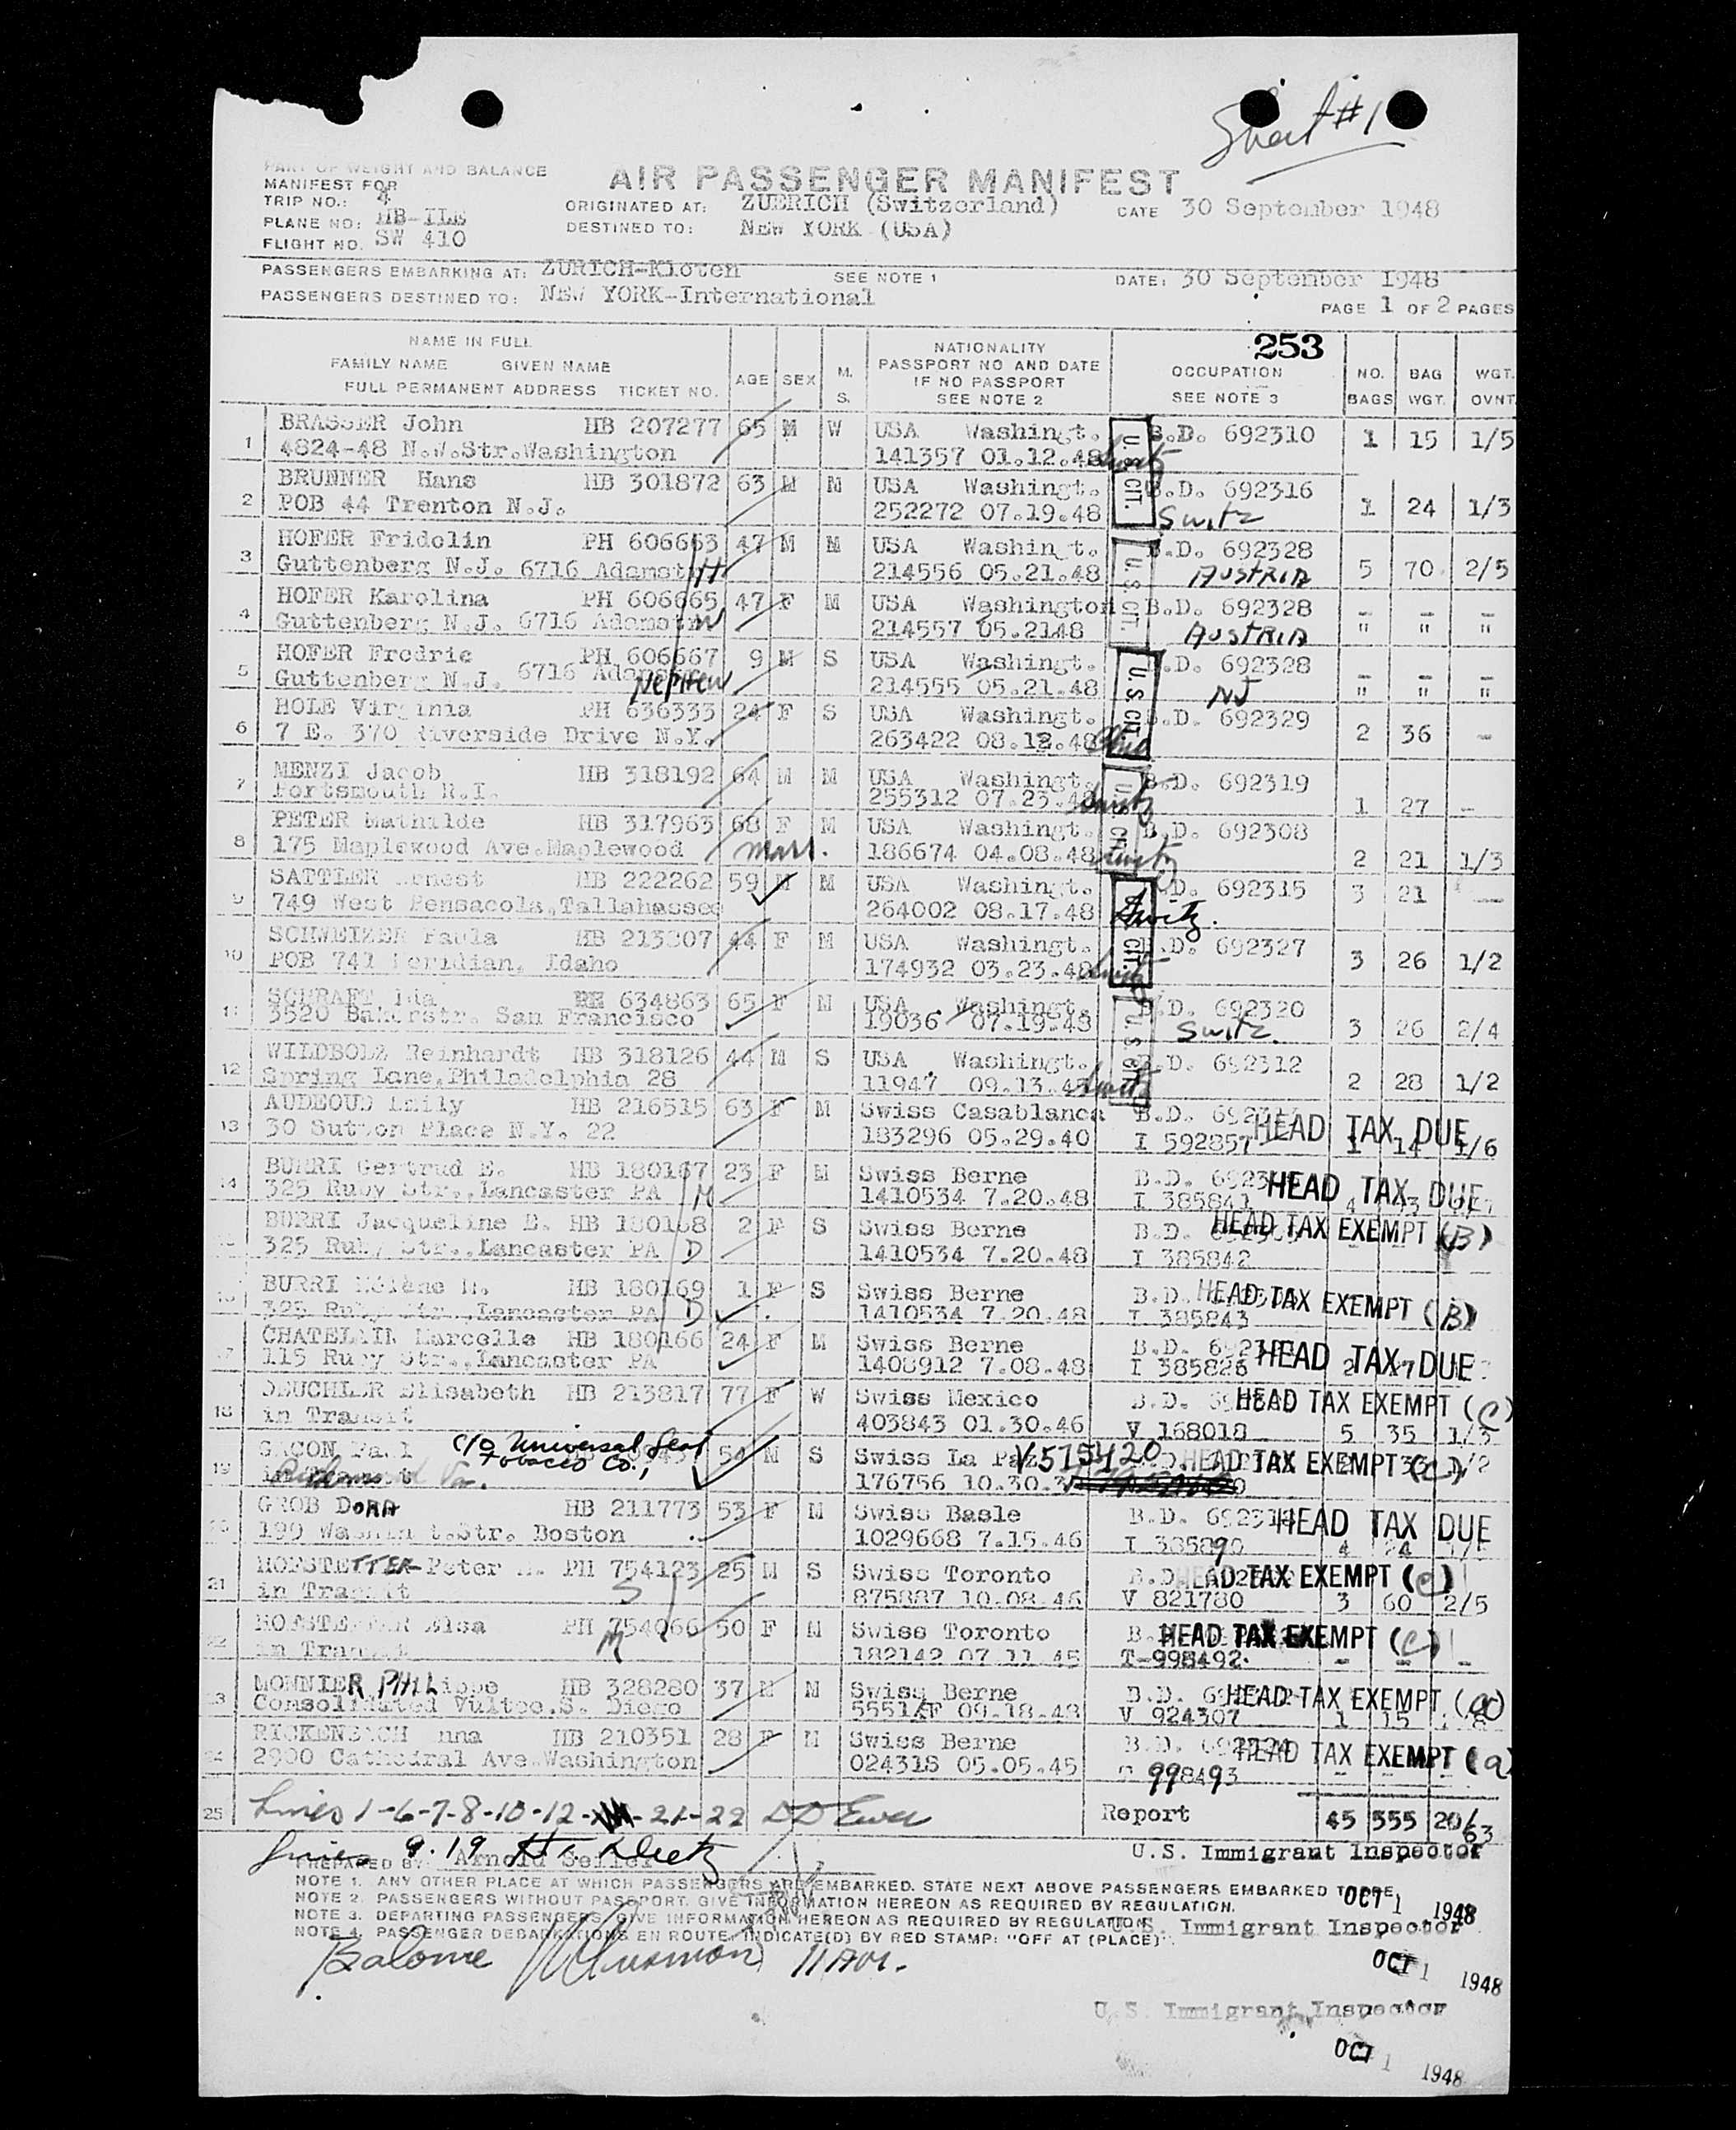 Sheet #1
PART OF WEIGHT AND BALANCE
MANIFEST FOR
AIR PASSENGER MANIFEST
TRIP NO.: 4
ORIGINATED AT: ZUERICH (Switzerland) DATE 30 September 1948
PLANE NO: HB-ILE
DESTINED TO: NEW YORK (USA)
FLIGHT NO. SW 410
PASSENGERS EMBARKING AT: ZURICH-Kloten SEE NOTE 1 DATE: 30 September 1948
PASSENGERS DESTINED TO: NEW YORK-International
PAGE 1 OF 2 PAGES
253
NAME IN FULL
FAMILY NAME GIVEN NAME
FULL PERMANENT ADDRESS TICKET NO.
AGE SEX M. S.
NATIONALITY
PASSPORT NO AND DATE
IF NO PASSPORT
SEE NOTE 2
OCCUPATION
SEE NOTE 3
NO. BAGS
BAG WGT.
WGT. OVNT.
1 BRASSER John HB 207277 65 M W USA Washingt. B.D. 692310 1 15 1/5
4824-48 N.W.Str.Washington 141357 01.12.48 Switz
U.S. CIT.
2 BRUNNER Hans HB 301872 63 M M USA Washingt. B.D. 692316 1 24 1/3
POB 44 Trenton N.J. 252272 07.19.48 Switz
3 HOFER Fridolin PH 606663 47 M M USA Washingt. B.D. 692328 5 70 2/5
Guttenberg N.J. 6716 Adamst H 214556 05.21.48 AUSTRIA
U.S. CIT.
4 HOFER Karolina PH 606665 47 F M USA Washington B.D. 692328 - - -
Guttenberg N.J. 6716 Adamst W 214557 05.2148 AUSTRIA " " "
5 HOFER Fredric PH 606667 9 M S USA Washingt. B.D. 692328 - - -
Guttenberg N.J. 6716 Nephew 214555 05.21.48 NJ " " "
U.S. CIT.
6 HOLE Virginia PH 636333 24 F S USA Washingt. B.D. 692329 2 36 -
7 E. 370 Riverside Drive N.Y. 263422 08.12.48
7 MENZI Jacob HB 318192 64 M M USA Washingt. B.D. 692319 1 27 -
Portsmouth R.I. 255312 07.23.48 Switz
U.S. CIT.
8 PETER Mathilde HB 317963 68 F M USA Washingt. B.D. 692308 2 21 1/3
175 Maplewood Ave.Maplewood Mass. 186674 04.08.48 Switz
9 SATTLER Ernest HB 222262 59 M M USA Washingt. B.D. 692315 3 21 -
749 West Pensacola,Tallahassee 264002 08.17.48 Switz.
CIT.
10 SCHWEIZER Paula HB 213807 44 F M USA Washingt. B.D. 692327 3 26 1/2
POB 741 Meridian, Idaho 174932 03.23.48 Switz
11 SCHRAFT Ida 634863 65 F M USA Washingt. B.D. 692320 3 26 2/4
3520 Bakerstr. San Francisco 19036 07.19.48 Switz.
U.S. CIT.
12 WILDBOLZ Reinhardt HB 318126 44 M S USA Washingt. B.D. 692312 2 28 1/2
Spring Lane,Philadelphia 28 11947 09.13.45 Switz
13 AUDEOUD Emily HB 216515 63 F M Swiss Casablanca B.D.
30 Sutton Place N.Y. 22 183296 05.29.40 I 592857 HEAD TAX DUE 1 14 1/6
14 BURRI Gertrud E. HB 180167 23 F M Swiss Berne B.D.
325 Ruby Str.,Lancaster PA M 1410534 7.20.48 I 385841 HEAD TAX DUE
BURRI Jacqueline E. HB 180168 2 F S Swiss Berne B.D. HEAD TAX EXEMPT (B)
325 Ruby Str.,Lancaster PA D 1410534 7.20.48 I 385842
BURRI Helene M. HB 180169 1 F S Swiss Berne B.D. HEAD TAX EXEMPT (B)
325 Ruby Str.,Lancaster PA D 1410534 7.20.48 I 385843
17 CHATELAIN Marcelle HB 180166 24 F M Swiss Berne B.D.
115 Ruby Str.,Lancaster PA 1408912 7.08.48 I 385826 HEAD TAX DUE
18 DEUCHLER Elisabeth HB 213817 77 F W Swiss Mexico B.D. HEAD TAX EXEMPT (C)
in Transit 403843 01.30.46 V 168018 5 35 1/3
19 GACON Paul c/o Universal Leaf Tobacco Co., 54 M S Swiss La Paz V575420 HEAD TAX EXEMPT (C)
Richmond Va. 176756 10.30.3
GROB DORA HB 211773 53 F M Swiss Basle B.D. HEAD TAX DUE
199 Washingt.Str. Boston 1029668 7.15.46 I 385890 4 24
21 HOFSTETTER Peter PH 754123 25 M S Swiss Toronto B.D. HEAD TAX EXEMPT (C)
in Transit S 875887 10.08.46 V 821780 3 60 2/5
22 HOFSTETTER Elsa PH 754066 50 F M Swiss Toronto B. HEAD TAX EXEMPT (C)
in Transit M 182142 07 11 45 T-998492. - - -
23 MONNIER PHILippe HB 328280 37 M M Swiss Berne B.D. HEAD TAX EXEMPT (a)
Consolidated Vultee,S. Diego 09.18.48 V 924307 1 15
24 RICKENBACH Anna HB 210351 28 F M Swiss Berne B.D. HEAD TAX EXEMPT (a)
2900 Cathedral Ave.Washington 024318 05.05.45 998493
25 Lines 1-6-7-8-10-12- -21-22 Report 45 555 20/63
Lines 9.19
U.S. Immigrant Inspector
PREPARED BY:
NOTE 1. ANY OTHER PLACE AT WHICH PASSENGERS ARE EMBARKED. STATE NEXT ABOVE PASSENGERS EMBARKED THERE.
NOTE 2. PASSENGERS WITHOUT PASSPORT. GIVE INFORMATION HEREON AS REQUIRED BY REGULATION.
OCT 1 1948
NOTE 3. DEPARTING PASSENGERS, GIVE INFORMATION HEREON AS REQUIRED BY REGULATION.
U.S. Immigrant Inspector
NOTE 4. PASSENGER DEBARKATIONS EN ROUTE INDICATE(D) BY RED STAMP: "OFF AT (PLACE)".
Balance 11AM.
OCT 1 1948
U.S. Immigrant Inspector
OCT 1 1948